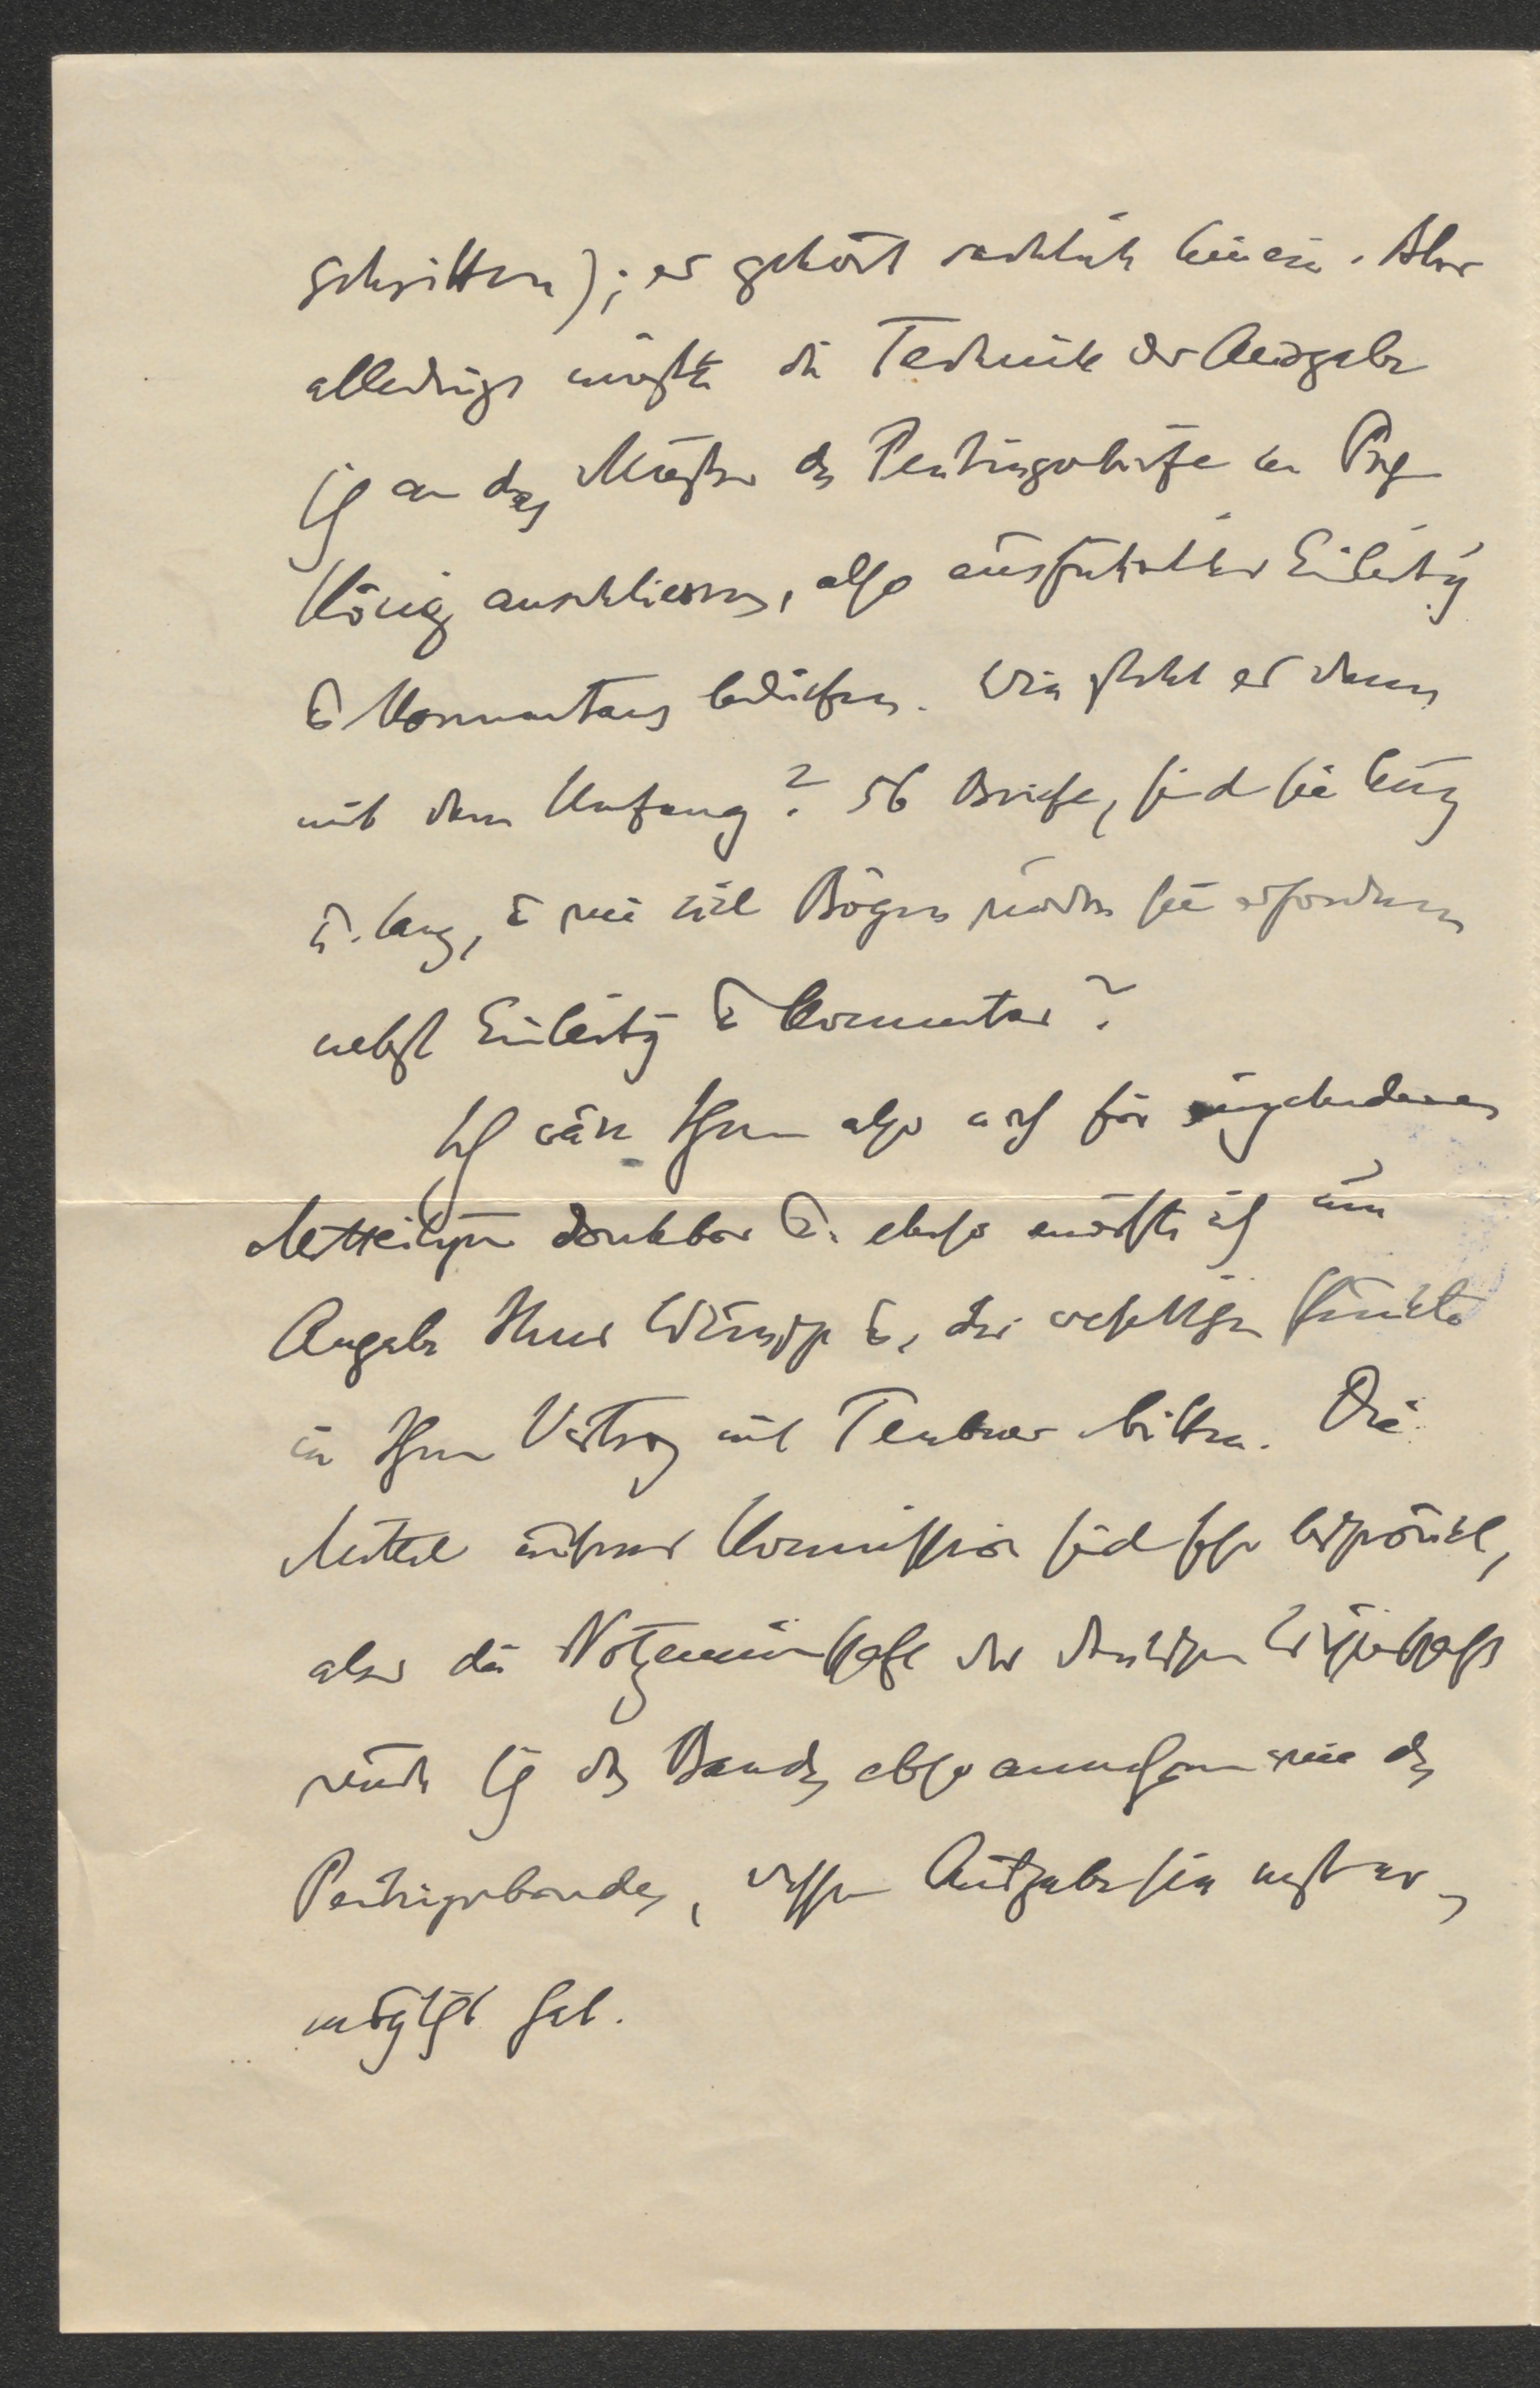 schritten); es gehört sachlich hinein. Aber
allerdings müßte die Technik der Ausgabe
sich an das Muster der Peutingerbriefe von Prof.
König anschliessen, also ausführlicher Einleitung
u. Kommentars bedürfen. Wie steht es denn
mit dem Umfang? 56 Briefe, sind sie kurz
u. lang, u. wie viel Bogen würden sie erfordern
nebst Einleitung u. Kommentar?
Ich wäre Ihnen also noch für eingehendere
Mitteilungen dankbar u. ebenso möchte ich um
Angabe Ihrer Wünsche u. der wichtigen Punkte
in Ihrem Vertrag mit Teubner bitten. Die
Mittel unserer Kommission sind sehr beschränkt,
aber die Notgemeinschaft der deutschen Wissenschaft
würde sich des Bandes ebenso annehmen wie des
Peutingerbandes, dessen Ausgabe sie erst er-
möglicht hat.